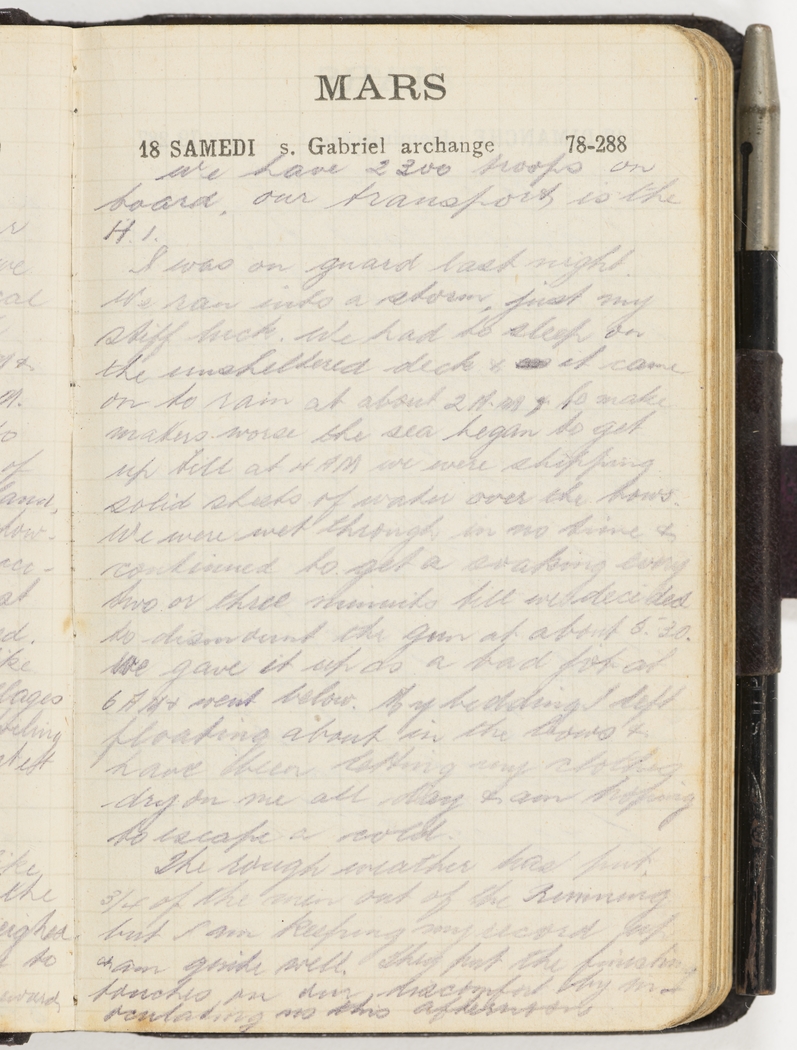 MARS
18 SAMEDI s. Gabriel archange 78-288
We have 2300 troops on
board, our transport is the
H.1.
I was on guard last night.
We ran into a storm, just my
stiff luck. We had to sleep on
the unsheltered deck & it came
on to rain at about 2 A.M & to make
maters worse the sea began to get
up till at 4 AM we were shipping
solid sheets of water over the bows.
We were wet through in no time &
continued to get a soaking every
two or three minuits till we decided
to dismount the gun at about 5.30.
We gave it up as a bad job at
6 AM & went below. My bedding I left
floating about in the bows &
have been letting my clothing
dry on me all day & am hoping
to escape a cold.
The rough weather has put
3/4 of the men out of the running
but I am keeping my record up
& am quite well. They put the finishing
touches on our discomfort by in-
oculating us this afternoon